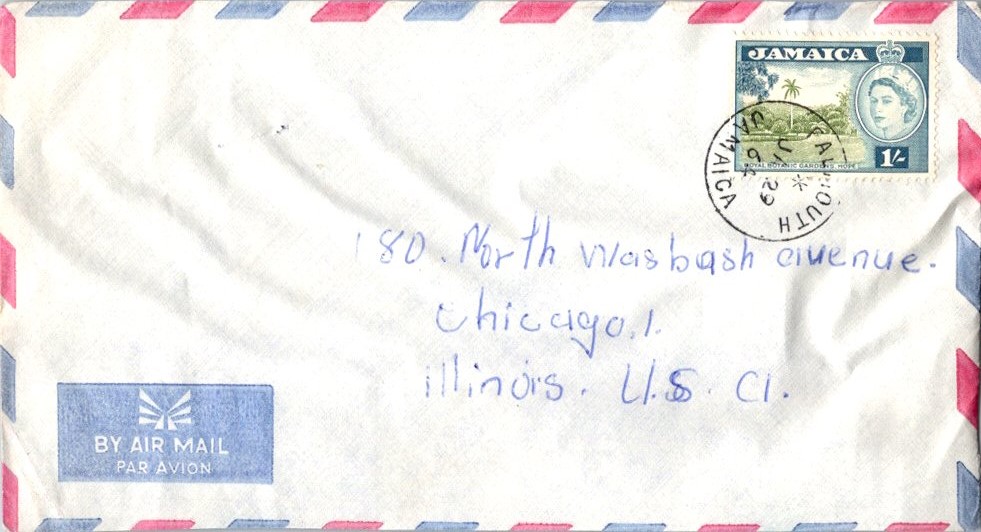 JAMAICA
ROYAL BOTANIC GARDENS, HOPE
1/-
FALMOUTH
JU 29
64
JAMAICA
180. North Wasbash avenue.
Chicago.1.
illinois. U.S. a.
BY AIR MAIL
PAR AVION